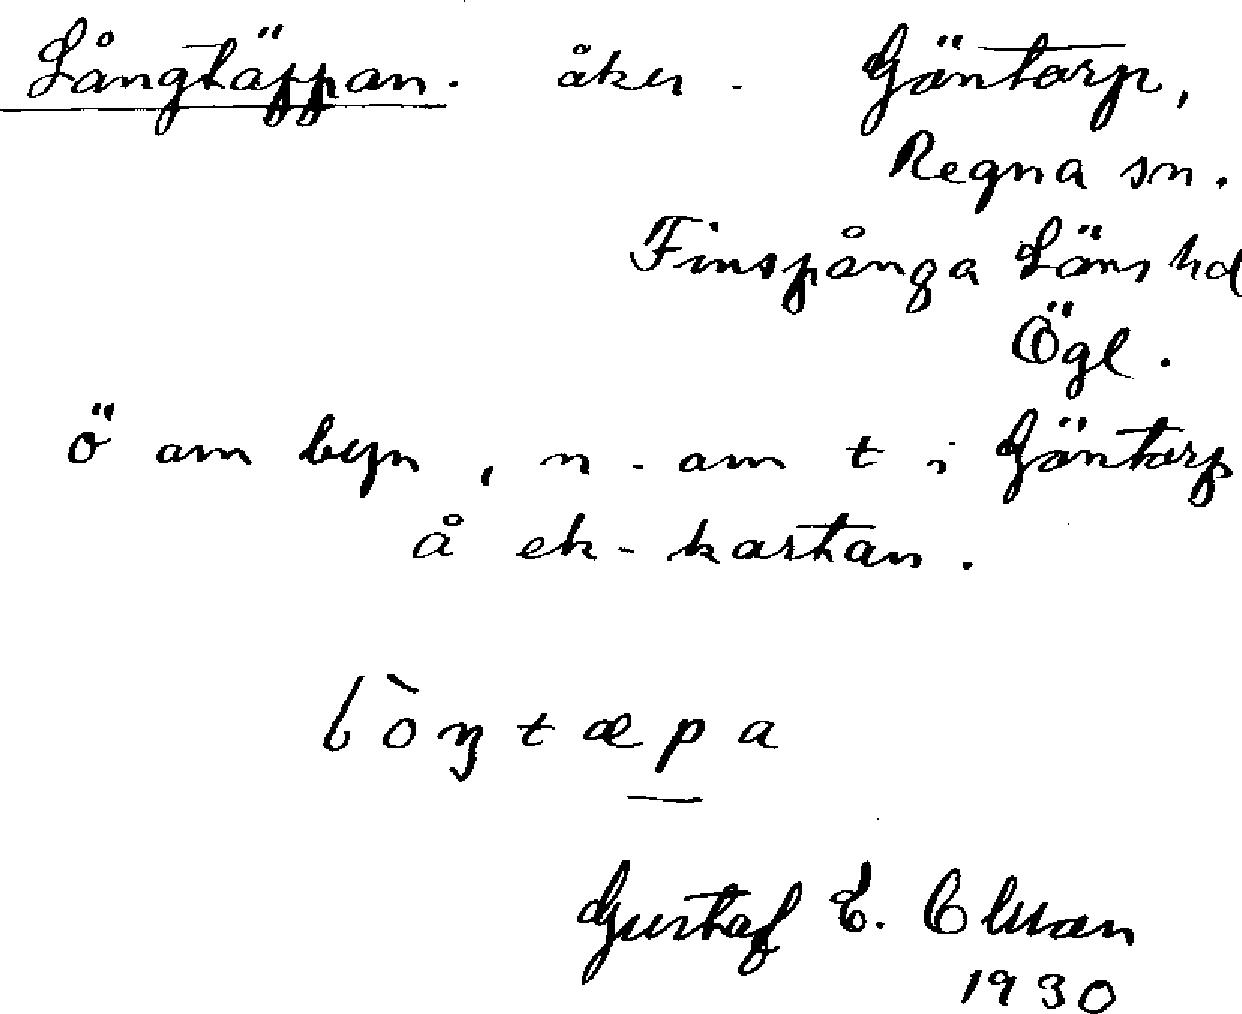 Långtäppan. åker. Gäntorp,
Regna sn.
Finspånga Läns hd
Ögl.
ö om byn, n. om t i Gäntorp
å ek-kartan.
lòŋtæpa
Gustaf E.
1930